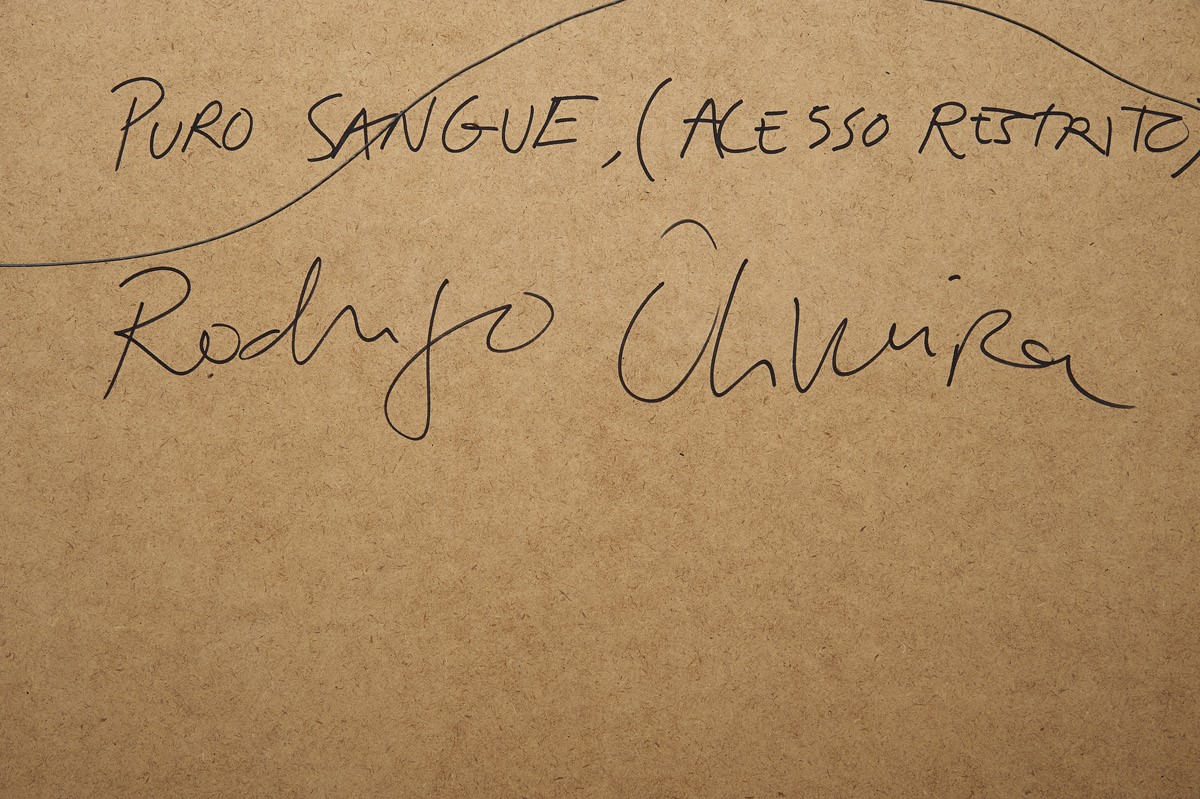 PURO SANGUE, (ACESSO RESTRITO)
Rodrigo Oliveira